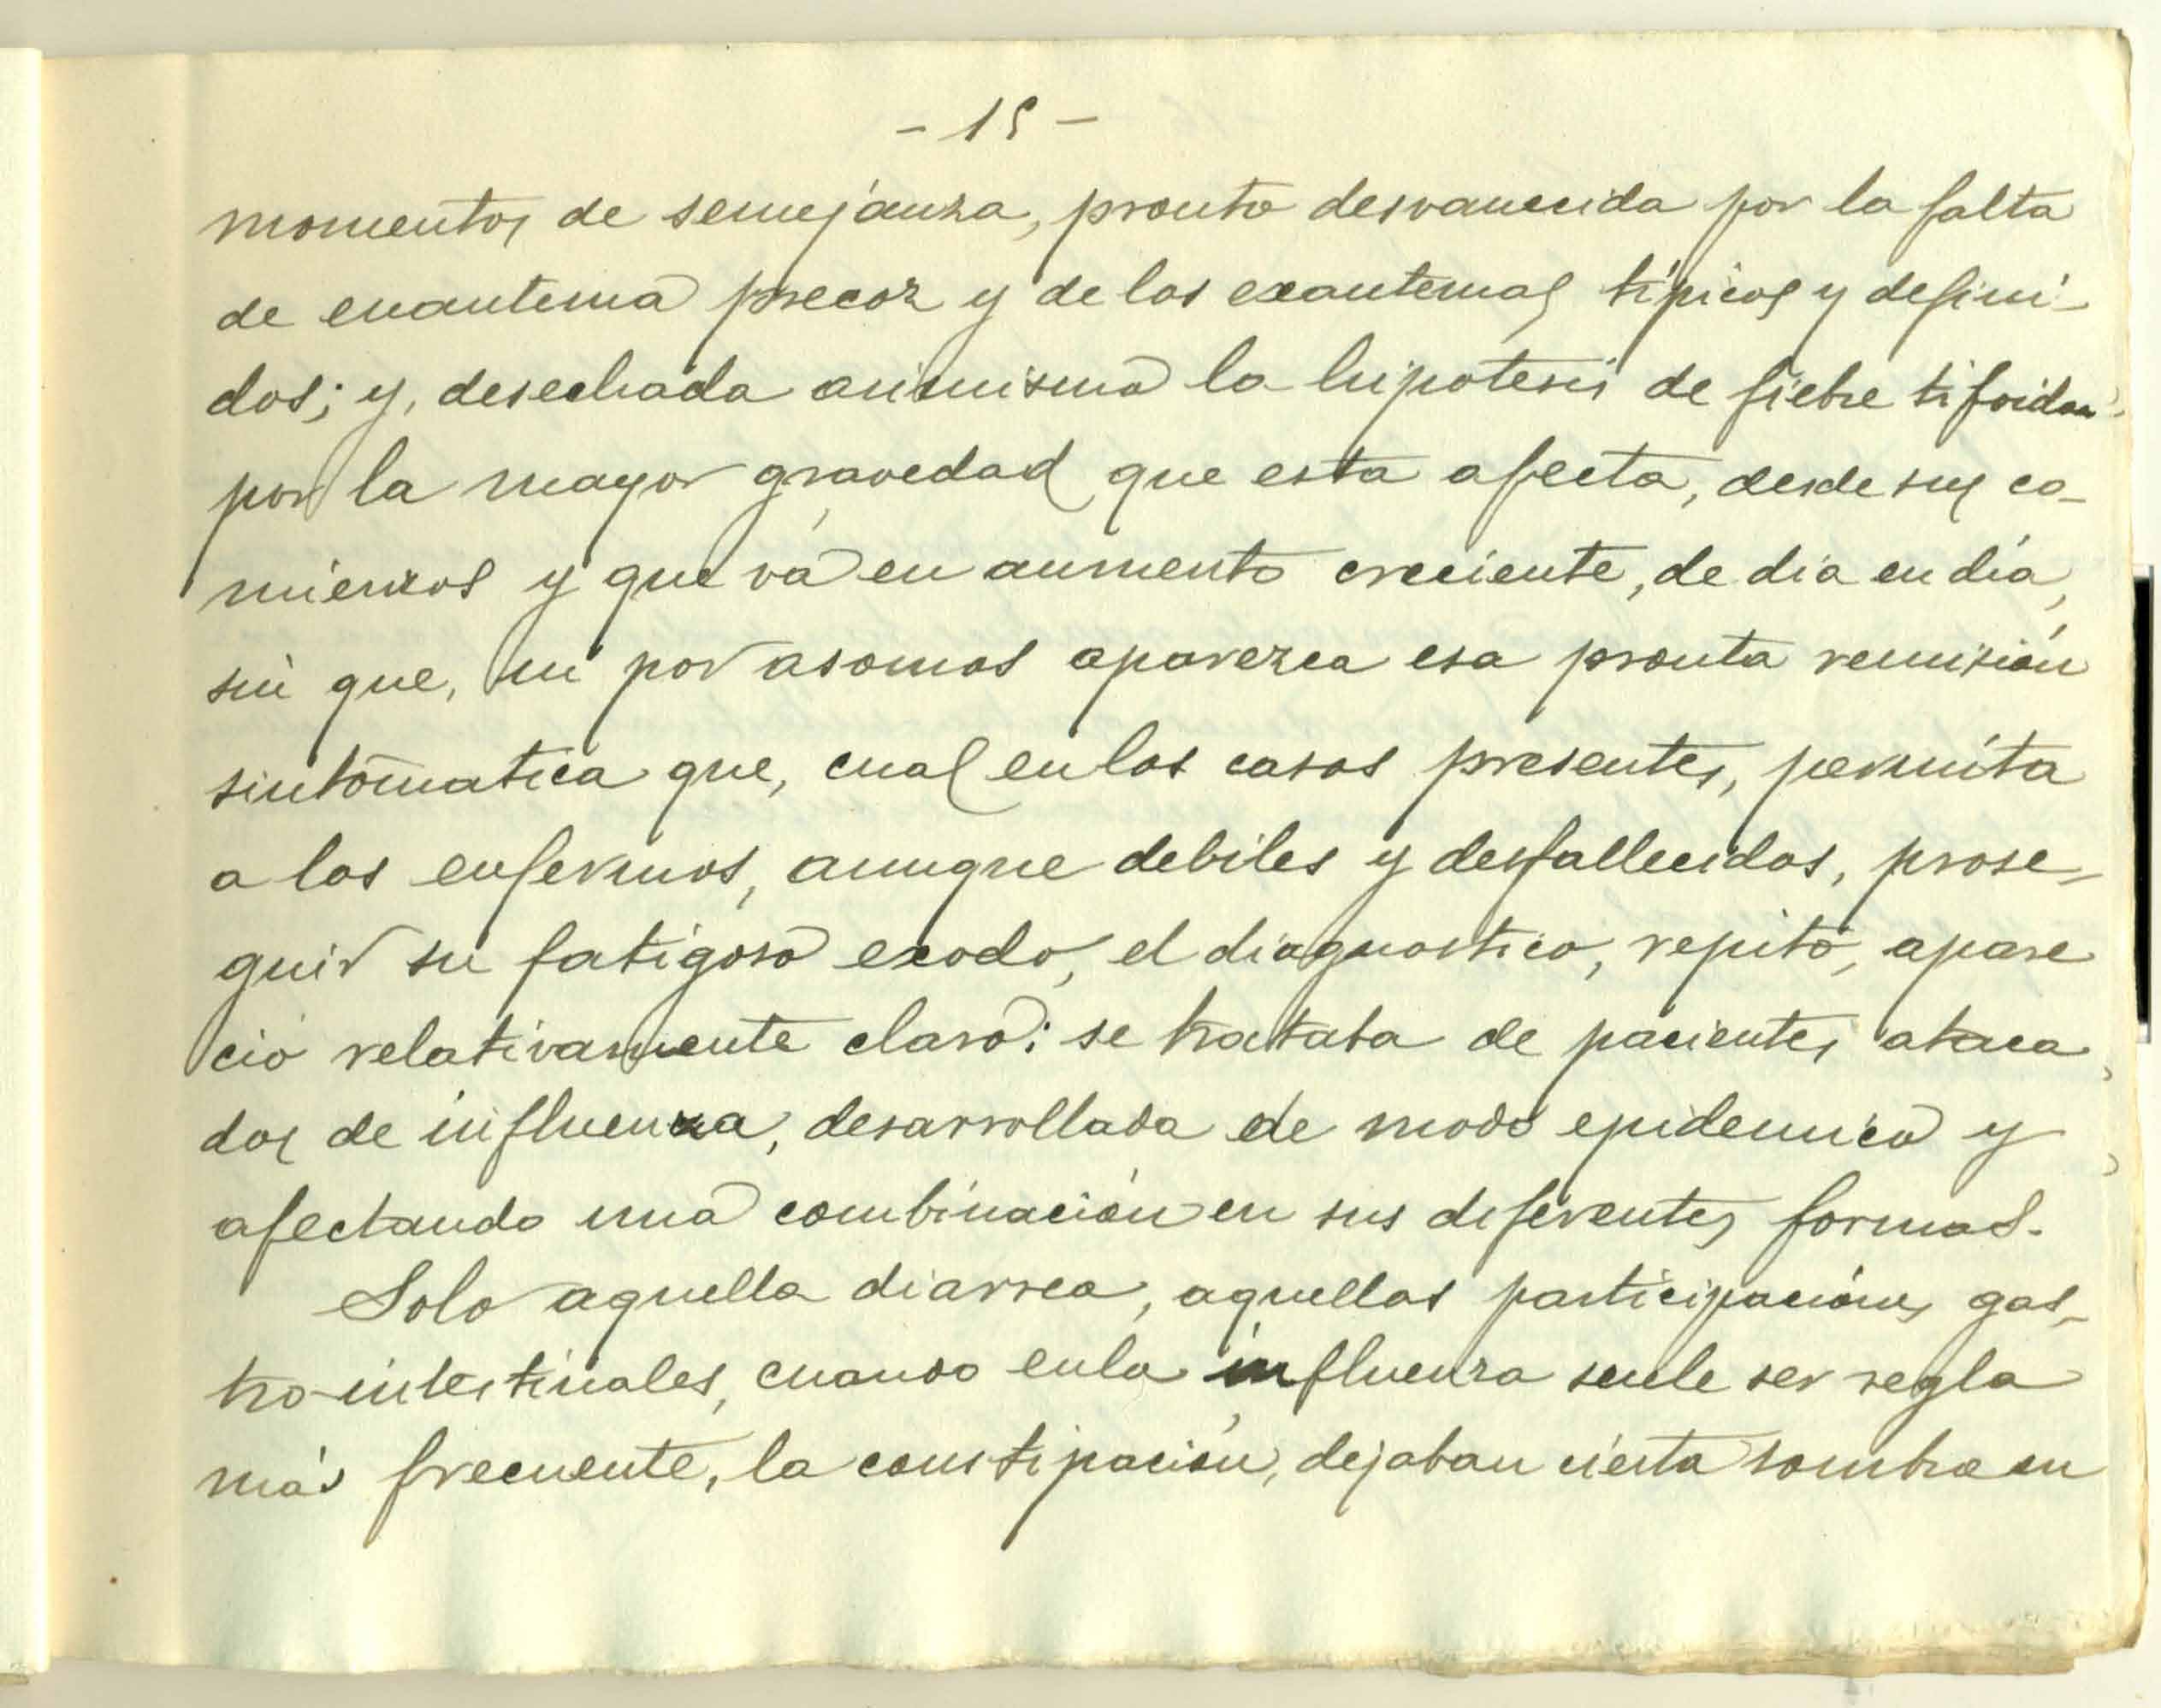 - 15 -
momentos de semejánza, pronto desvanecida por la falta
de enantema precoz y de los exantemas típicos y defini-
dos; y, desechada asimismo la hipotesis de fiebre tifoidea
por la mayor gravedad que esta afecta, desde sus co-
mienzos y que vá en aumento creciente, de dia en día,
sin que, ni por asomos aparezca esa pronta remisión
sintomatica que, cual en los casos presentes, permita
a los enfermos, aunque debiles y desfallecidos, prose-
guir su fatigoso exodo, el diagnostico, repito, apare
ció relativamente claro: se trataba de pacientes ataca
dos de influenza, desarrollada de modo epidemico y
afectando una combinación en sus diferentes formas.
Solo aquella diarrea, aquellas participaciónes gas-
tro-intestinales, cuando en la influenza suele ser regla
más frecuente, la constipación, dejaban cierta sombra en